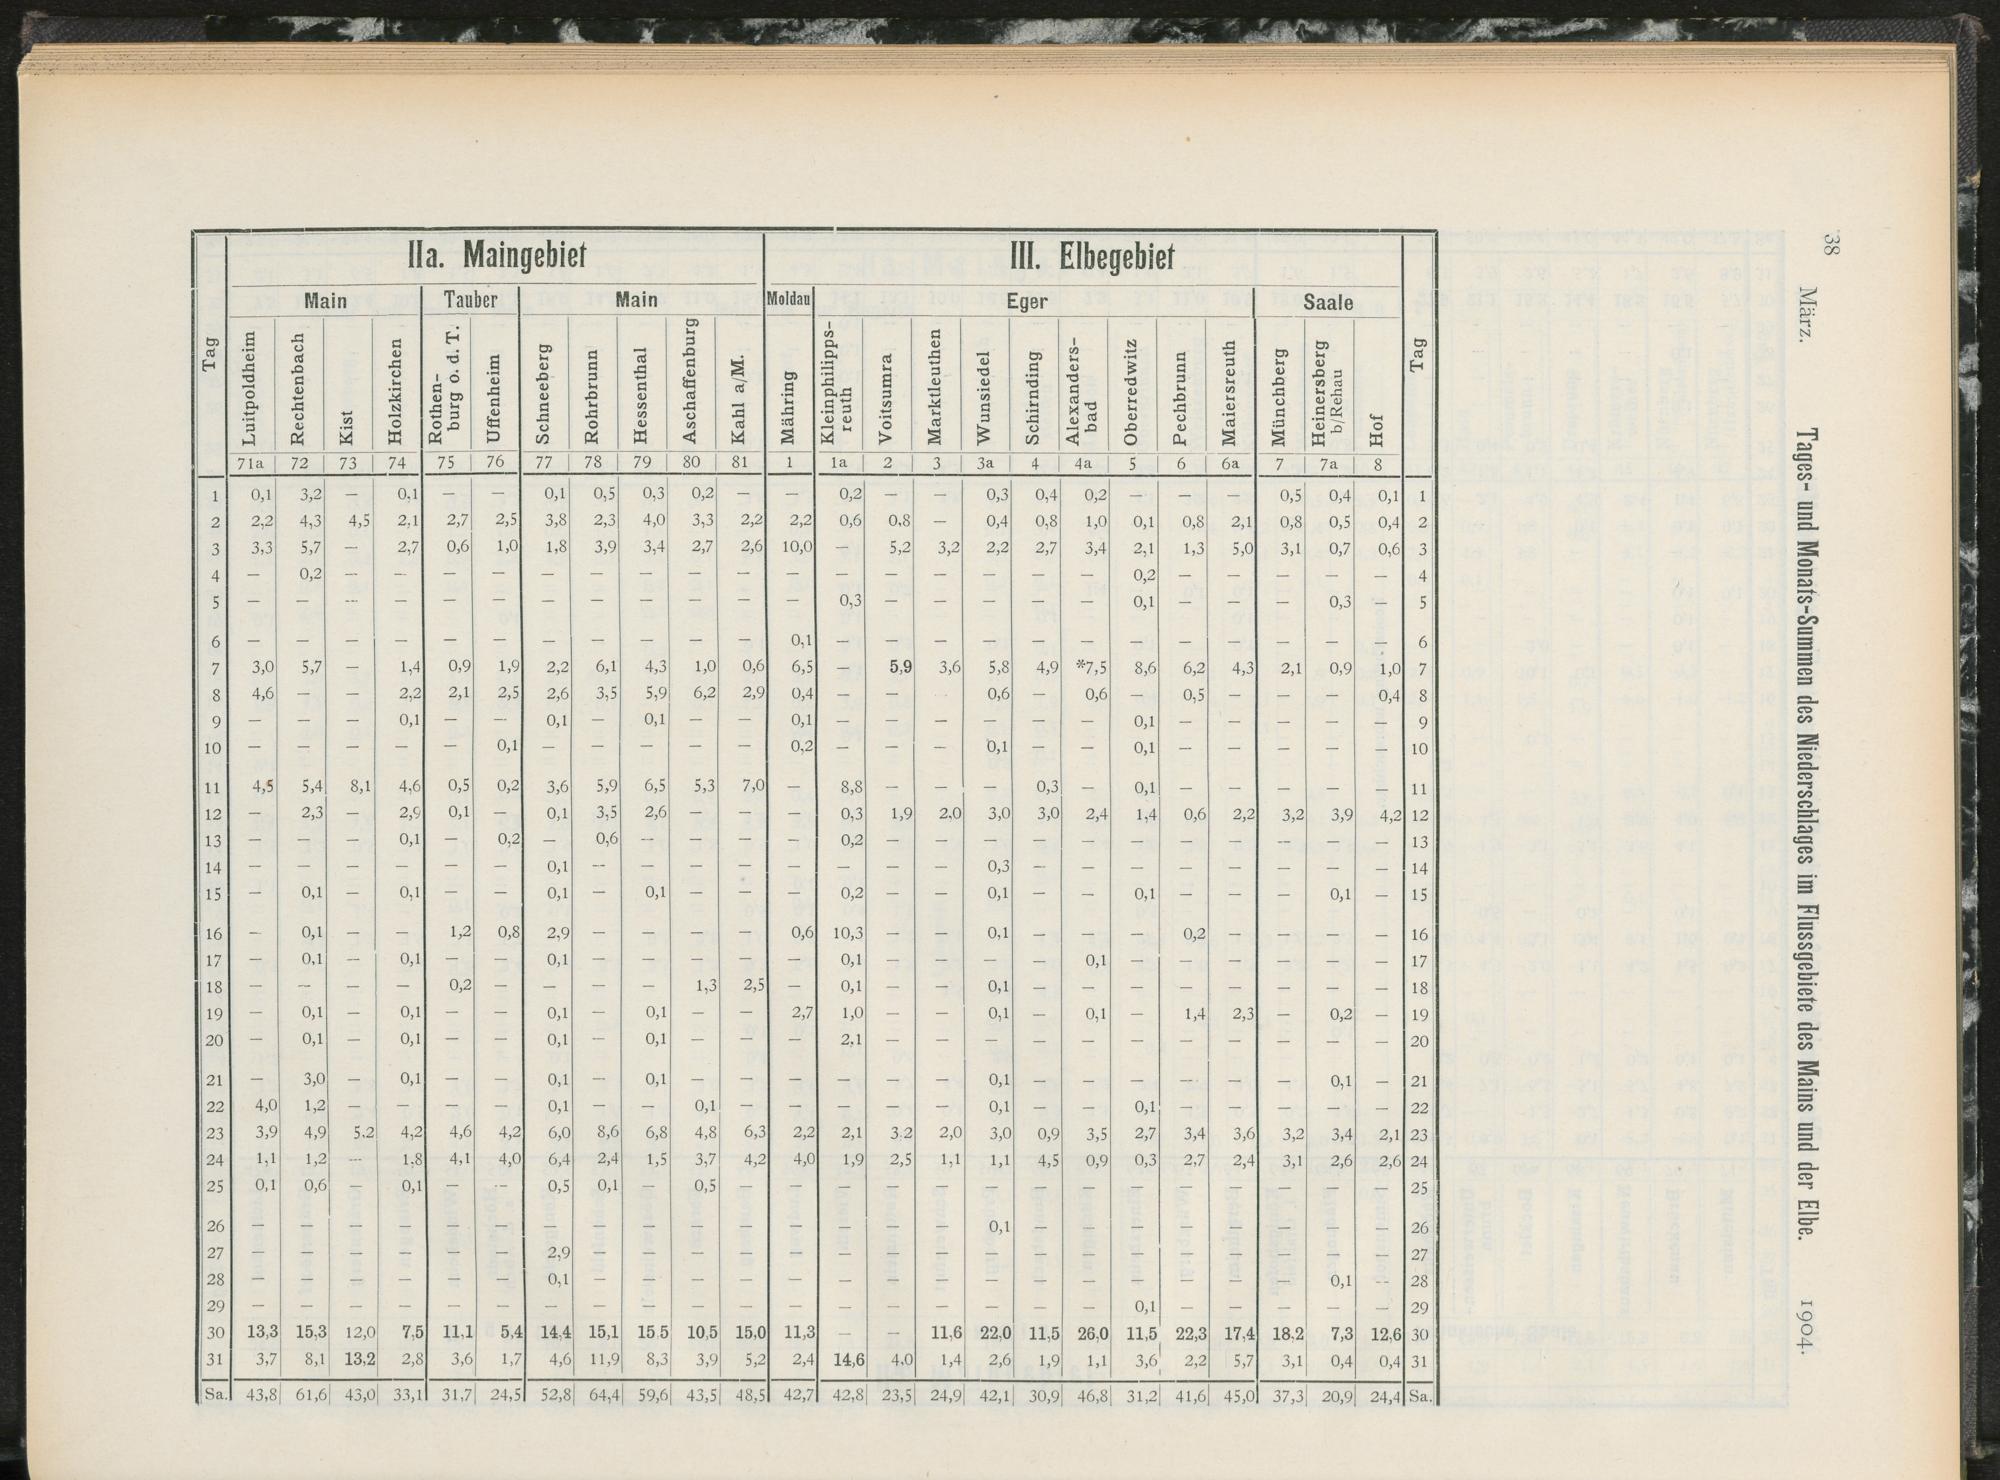 38
März.
Tages- und Monats-Summen des Niederschlages im Flussgebiete des Mains und der Elbe.
1904.
IIa. Maingebiet III. Elbegebiet
Main Tauber Main Moldau Eger Saale
Tag Luitpoldheim Rechtenbach Kist Holzkirchen Rothen-burg o. d. T. Uffenheim Schneeberg Rohrbrunn Hessenthal Aschaffenburg Kahl a/M. Mähring Kleinphilipps-reuth Voitsumra Marktleuthen Wunsiedel Schirnding Alexanders-bad Oberredwitz Pechbrunn Maiersreuth Münchberg Heinersberg b/Rehau Hof Tag
71a 72 73 74 75 76 77 78 79 80 81 1 1a 2 3 3a 4 4a 5 6 6a 7 7a 8
1 0,1 3,2 — 0,1 — — 0,1 0,5 0,3 0,2 — — 0,2 — — 0,3 0,4 0,2 — — — 0,5 0,4 0,1 1
2 2,2 4,3 4,5 2,1 2,7 2,5 3,8 2,3 4,0 3,3 2,2 2,2 0,6 0,8 — 0,4 0,8 1,0 0,1 0,8 2,1 0,8 0,5 0,4 2
3 3,3 5,7 — 2,7 0,6 1,0 1,8 3,9 3,4 2,7 2,6 10,0 — 5,2 3,2 2,2 2,7 3,4 2,1 1,3 5,0 3,1 0,7 0,6 3
4 — 0,2 — — — — — — — — — — — — — — — — 0,2 — — — — — 4
5 — — — — — — — — — — — — 0,3 — — — — — 0,1 — — — 0,3 — 5
6 — — — — — — — — — — — 0,1 — — — — — — — — — — — — 6
7 3,0 5,7 — 1,4 0,9 1,9 2,2 6,1 4,3 1,0 0,6 6,5 — 5,9 3,6 5,8 4,9 *7,5 8,6 6,2 4,3 2,1 0,9 1,0 7
8 4,6 — — 2,2 2,1 2,5 2,6 3,5 5,9 6,2 2,9 0,4 — — 0,6 — 0,6 — 0,5 — — — 0,4 8
9 — — — 0,1 — — 0,1 — 0,1 — — 0,1 — — — — — — 0,1 — — — — — 9
10 — — — — — 0,1 — — — — — 0,2 — — — 0,1 — — 0,1 — — — — — 10
11 4,5 5,4 8,1 4,6 0,5 0,2 3,6 5,9 6,5 5,3 7,0 — 8,8 — — — 0,3 — 0,1 — — — — — 11
12 — 2,3 — 2,9 0,1 — 0,1 3,5 2,6 — — — 0,3 1,9 2,0 3,0 3,0 2,4 1,4 0,6 2,2 3,2 3,9 4,2 12
13 — — — 0,1 — 0,2 — 0,6 — — — — 0,2 — — — — — — — — — — — 13
14 — — — — — — 0,1 — — — — — — — — 0,3 — — — — — — — — 14
15 — 0,1 — 0,1 — — 0,1 — 0,1 — — — 0,2 — — 0,1 — — 0,1 — — — 0,1 — 15
16 — 0,1 — — 1,2 0,8 2,9 — — — — 0,6 10,3 — — 0,1 — — — 0,2 — — — — 16
17 — 0,1 — 0,1 — — 0,1 — — — — — 0,1 — — — — 0,1 — — — — — — 17
18 — — — — 0,2 — — — — 1,3 2,5 — 0,1 — — 0,1 — — — — — — — — 18
19 — 0,1 — 0,1 — — 0,1 — 0,1 — — 2,7 1,0 — — 0,1 — 0,1 — 1,4 2,3 — 0,2 — 19
20 — 0,1 — 0,1 — — 0,1 — 0,1 — — — 2,1 — — — — — — — — — — — 20
21 — 3,0 — 0,1 — — 0,1 — 0,1 — — — — — — 0,1 — — — — — — 0,1 — 21
22 4,0 1,2 — — — — 0,1 — — 0,1 — — — — — 0,1 — — 0,1 — — — — — 22
23 3,9 4,9 5,2 4,2 4,6 4,2 6,0 8,6 6,8 4,8 6,3 2,2 2,1 3,2 2,0 3,0 0,9 3,5 2,7 3,4 3,6 3,2 3,4 2,1 23
24 1,1 1,2 — 1,8 4,1 4,0 6,4 2,4 1,5 3,7 4,2 4,0 1,9 2,5 1,1 1,1 4,5 0,9 0,3 2,7 2,4 3,1 2,6 2,6 24
25 0,1 0,6 — 0,1 — — 0,5 0,1 — 0,5 — — — — — — — — — — — — — — 25
26 — — — — — — — — — — — — — — — 0,1 — — — — — — — — 26
27 — — — — — — 2,9 — — — — — — — — — — — — — — — — — 27
28 — — — — — — 0,1 — — — — — — — — — — — — — — — 0,1 — 28
29 — — — — — — — — — — — — — — — — — — 0,1 — — — — — 29
30 13,3 15,3 12,0 7,5 11,1 5,4 14,4 15,1 15,5 10,5 15,0 11,3 — — 11,6 22,0 11,5 26,0 11,5 22,3 17,4 18,2 7,3 12,6 30
31 3,7 8,1 13,2 2,8 3,6 1,7 4,6 11,9 8,3 3,9 5,2 2,4 14,6 4,0 1,4 2,6 1,9 1,1 3,6 2,2 5,7 3,1 0,4 0,4 31
Sa. 43,8 61,6 43,0 33,1 31,7 24,5 52,8 64,4 59,6 43,5 48,5 42,7 42,8 23,5 24,9 42,1 30,9 46,8 31,2 41,6 45,0 37,3 20,9 24,4 Sa.